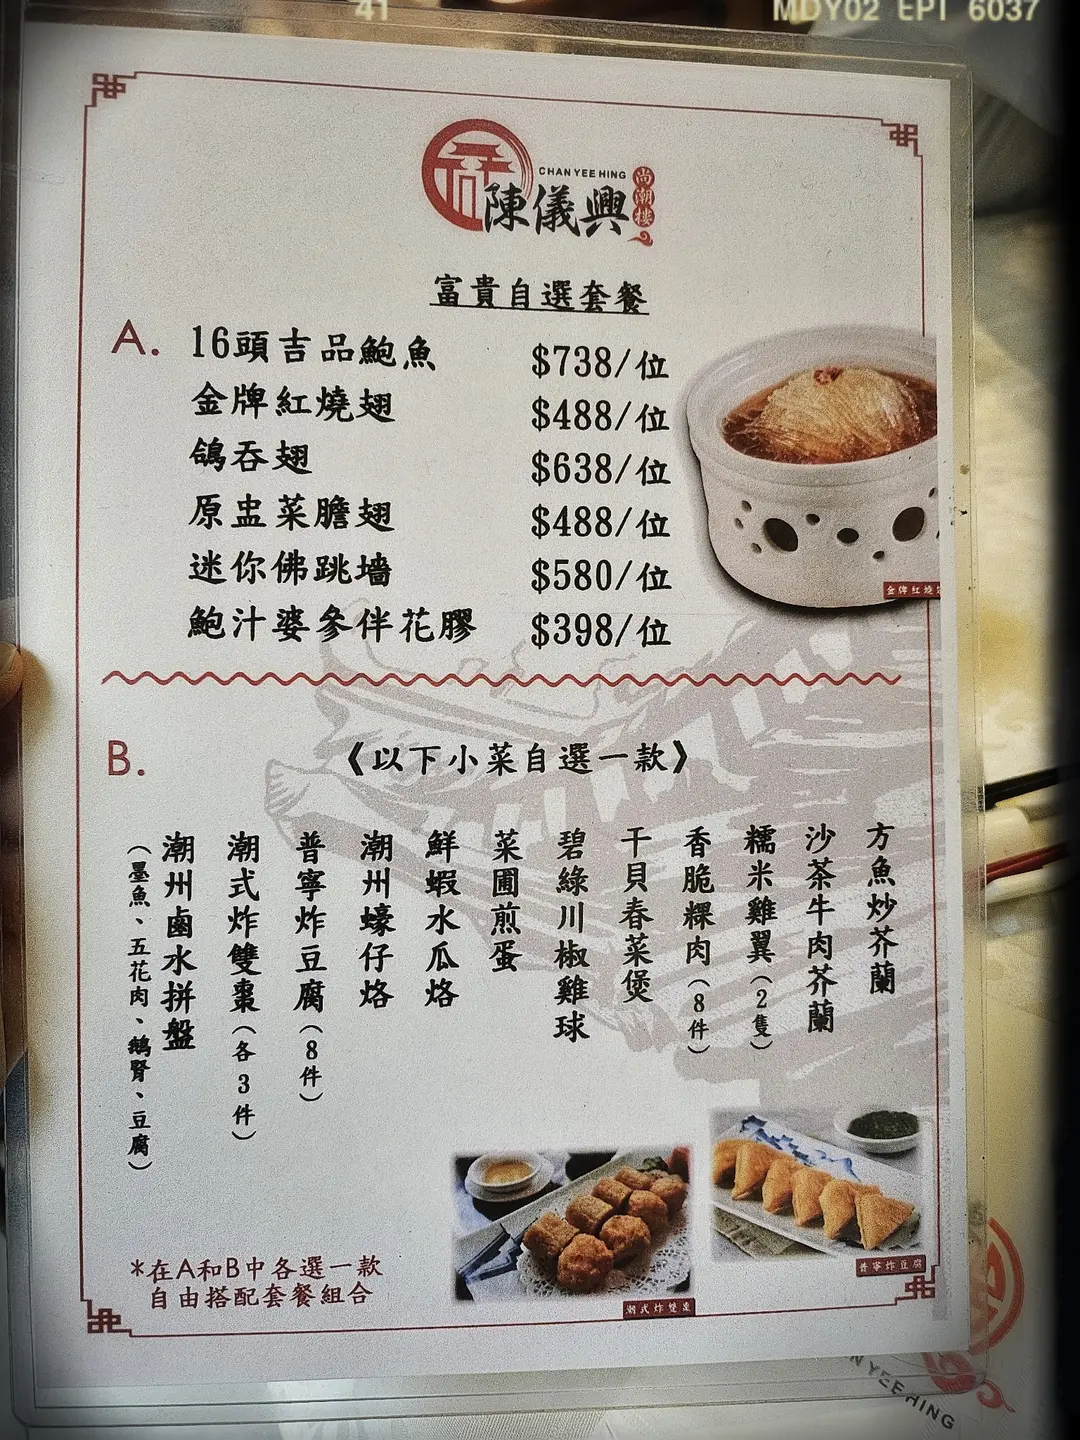 41
MDY02 EPI 6037
CHAN YEE HING
陳儀興
尚潮樓
富貴自選套餐
A.
16頭吉品鮑魚 $738/位
金牌紅燒翅 $488/位
鴿吞翅 $638/位
原盅菜膽翅 $488/位
迷你佛跳墻 $580/位
鮑汁婆參伴花膠 $398/位
金牌紅燒
B.
《以下小菜自選一款》
方魚炒芥蘭
沙茶牛肉芥蘭
糯米雞翼(2隻)
香脆粿肉(8件)
干貝春菜煲
碧綠川椒雞球
菜圃煎蛋
鮮蝦水瓜烙
潮州蠔仔烙
普寧炸豆腐(8件)
潮式炸雙棗(各3件)
潮州鹵水拼盤
(墨魚、五花肉、鵝腎、豆腐)
普寧炸豆腐
潮式炸雙棗
*在A和B中各選一款
自由搭配套餐組合
N YEE HING